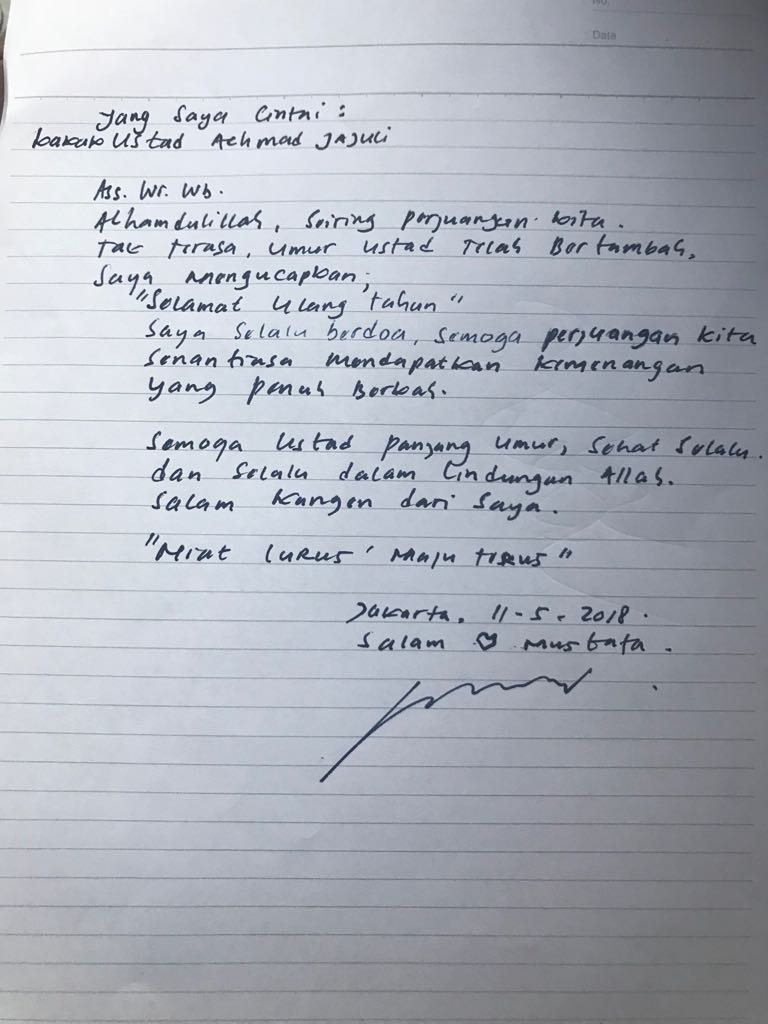 No.
Date
Yang Saya Cintai :
kakak Ustad Achmad Jajuli
Ass. Wr. Wb.
Alhamdulillah, Seiring perjuangan kita.
Tak terasa, umur ustad Telah Bertambah,
Saya mengucapkan;
"Selamat Ulang tahun"
Saya Selalu berdoa, Semoga perjuangan kita
Senantiasa mendapatkan kemenangan
yang penuh Berkah.
Semoga Ustad panjang umur, Sehat Selalu.
dan Selalu dalam Lindungan Allah.
Salam kangen dari Saya.
"Niat Lurus' Maju terus"
Jakarta. 11-5-2018.
Salam ♡ Mustafa.